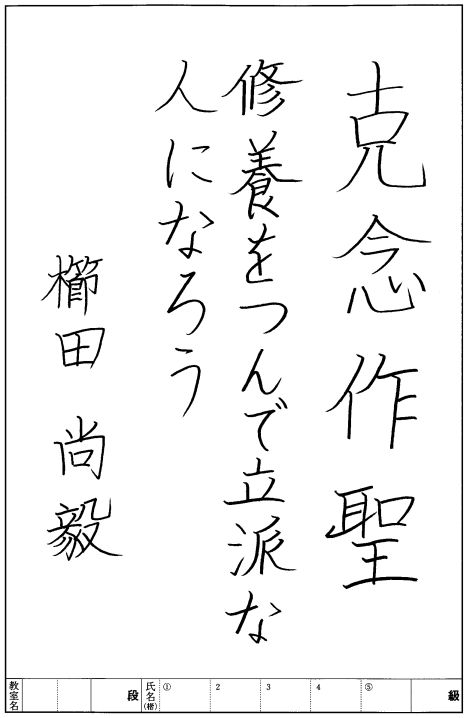 克念作聖
修養をつんで立派な
人になろう
櫛田 尚毅
級 ⑤ 4 3 2 ① 氏名(楷) 段 教室名